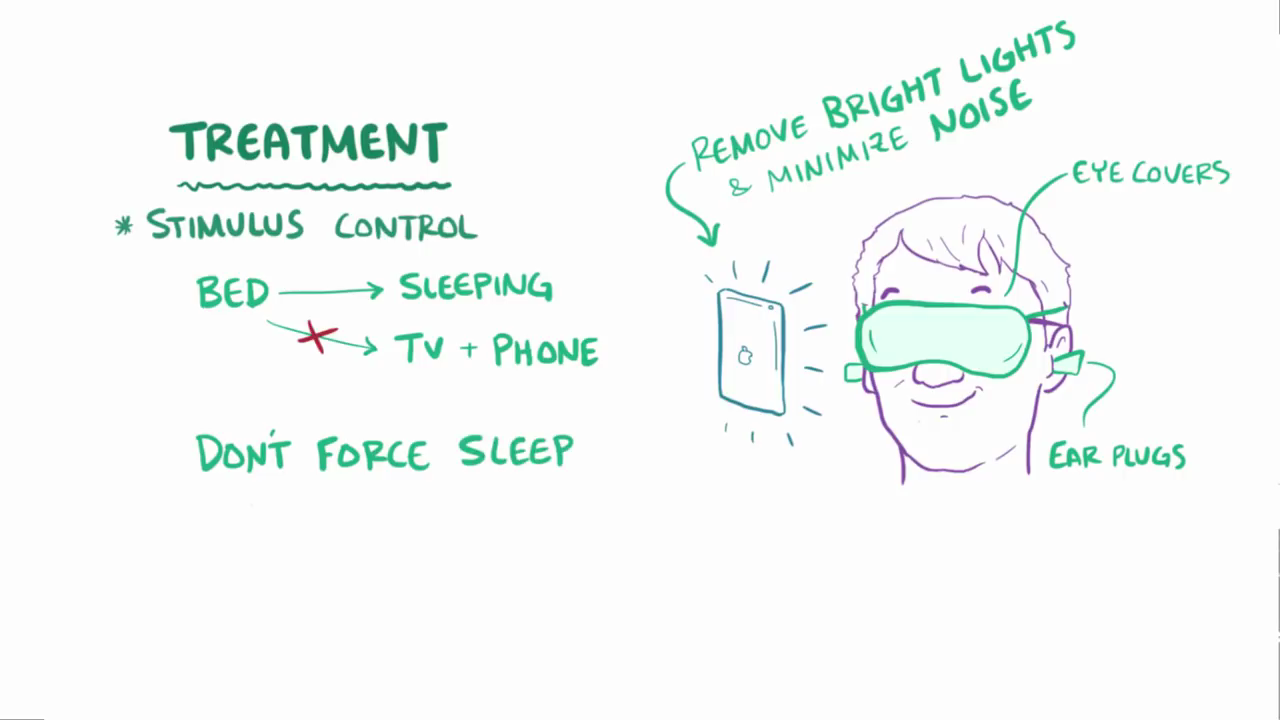 TREATMENT
* STIMULUS CONTROL
BED → SLEEPING
TV + PHONE
DON'T FORCE SLEEP
REMOVE BRIGHT LIGHTS
& MINIMIZE NOISE
EYE COVERS
EAR PLUGS